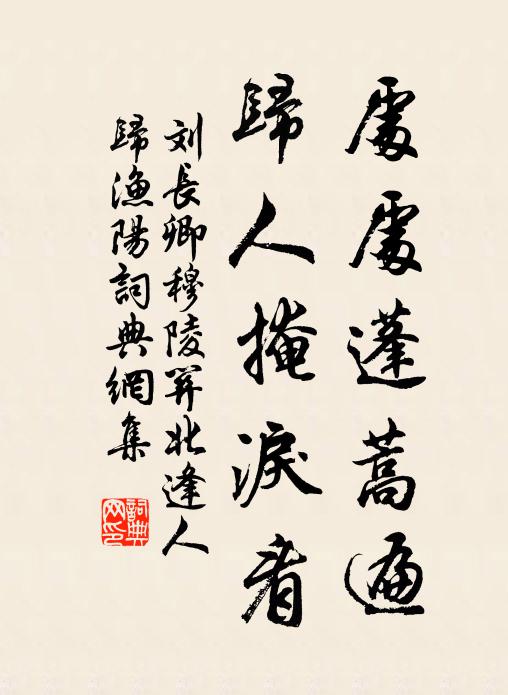 處處蓬蒿遍
歸人掩淚看
刘長卿穆陵关北逢人
歸漁陽詞典網集
詞典网印